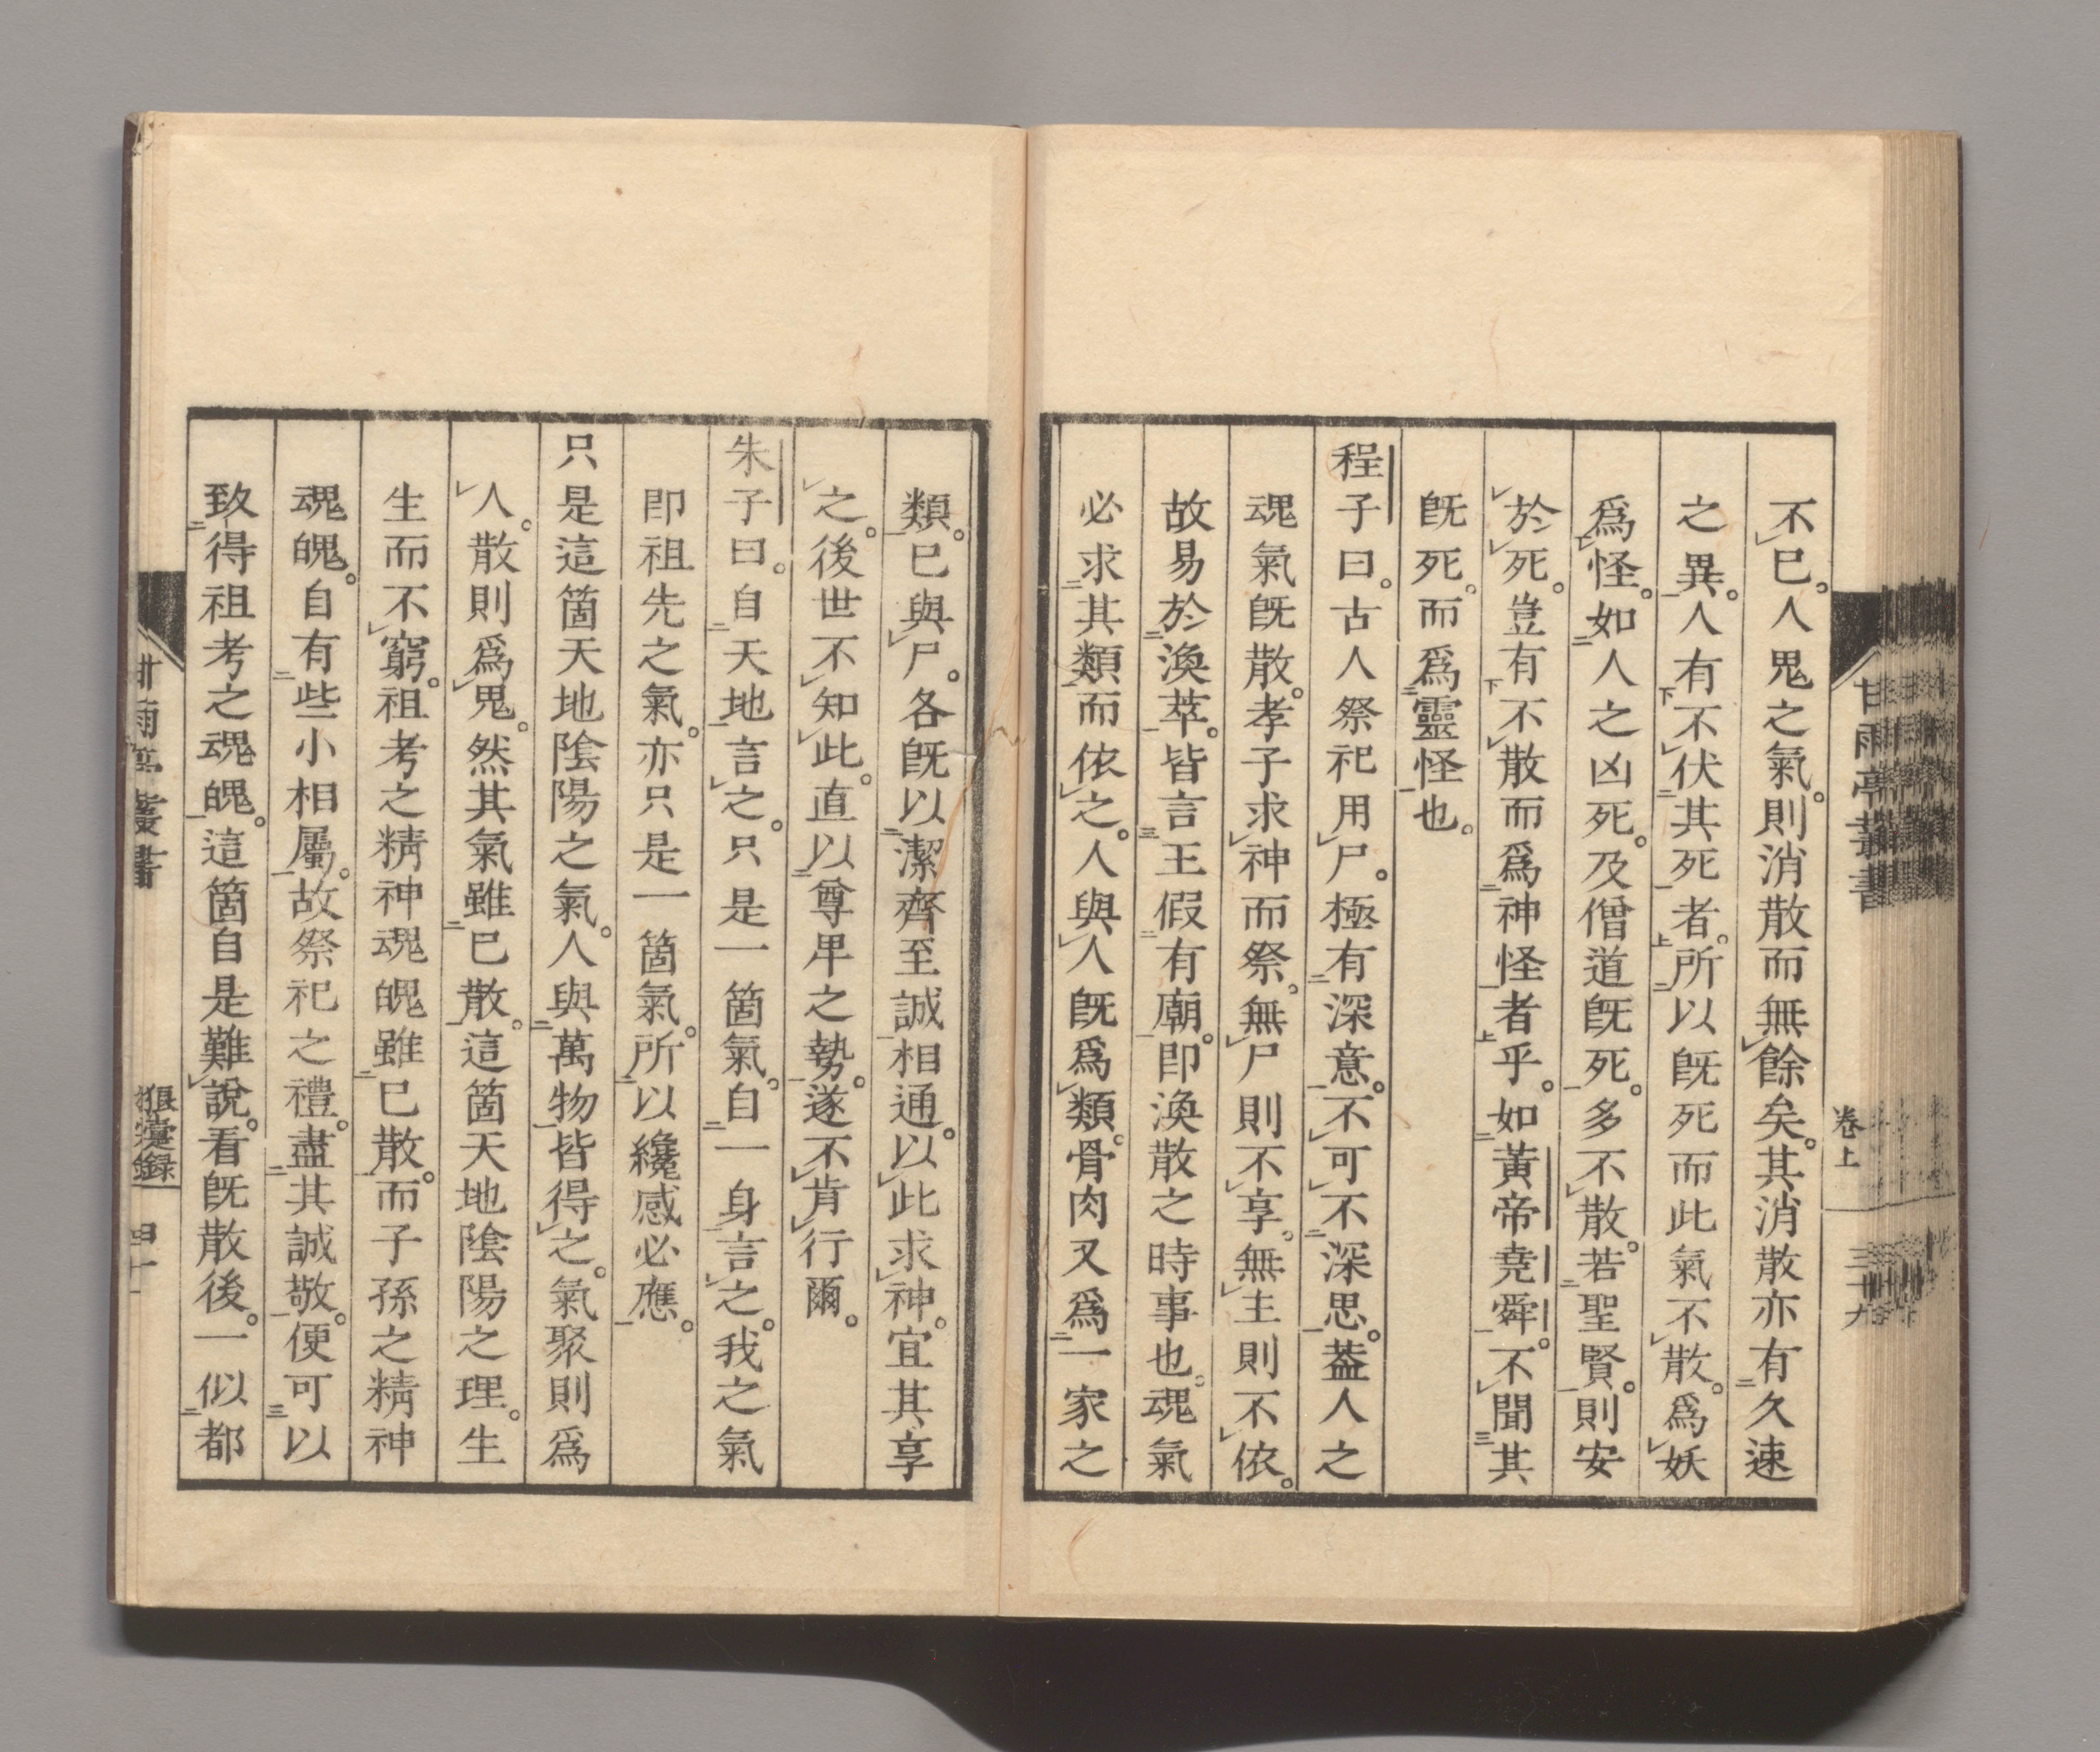 甘雨亭叢書
卷上
三十九
不已。人鬼之氣。則消散而無餘矣。其消散亦有久速
之異。人有不伏其死者。所以旣死而此氣不散。爲妖
爲怪。如人之凶死。及僧道旣死。多不散。若聖賢。則安
於死。豈有不散而爲神怪者乎。如黃帝堯舜。不聞其
旣死。而爲靈怪也。
程子曰。古人祭祀用尸。極有深意。不可不深思。葢人之
魂氣旣散。孝子求神而祭。無尸則不享。無主則不依。
故易於渙萃。皆言王假有廟。即渙散之時事也。魂氣
必求其類而依之。人與人旣爲類。骨肉又爲一家之
類。已與尸。各旣以潔齊至誠相通。以此求神。宜其享
之。後世不知此。直以尊卑之勢。遂不肯行爾。
朱子曰。自天地言之。只是一箇氣。自一身言之。我之氣
即祖先之氣。亦只是一箇氣。所以纔感必應。
只是這箇天地陰陽之氣。人與萬物皆得之。氣聚則爲
人。散則爲鬼。然其氣雖已散。這箇天地陰陽之理。生
生而不窮。祖考之精神魂魄雖已散。而子孫之精神
魂魄。自有些小相屬。故祭祀之禮。盡其誠敬。便可以
致得祖考之魂魄。這箇自是難說。看旣散後。一似都
甘雨亭叢書
狼疐錄
四十